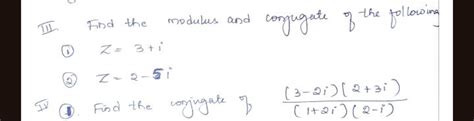 III Find the modulus and conjugate of the following
① Z = 3+i
② Z = 2-5i
IV ① Find the conjugate of (3-2i)(2+3i) / (1+2i)(2-i)